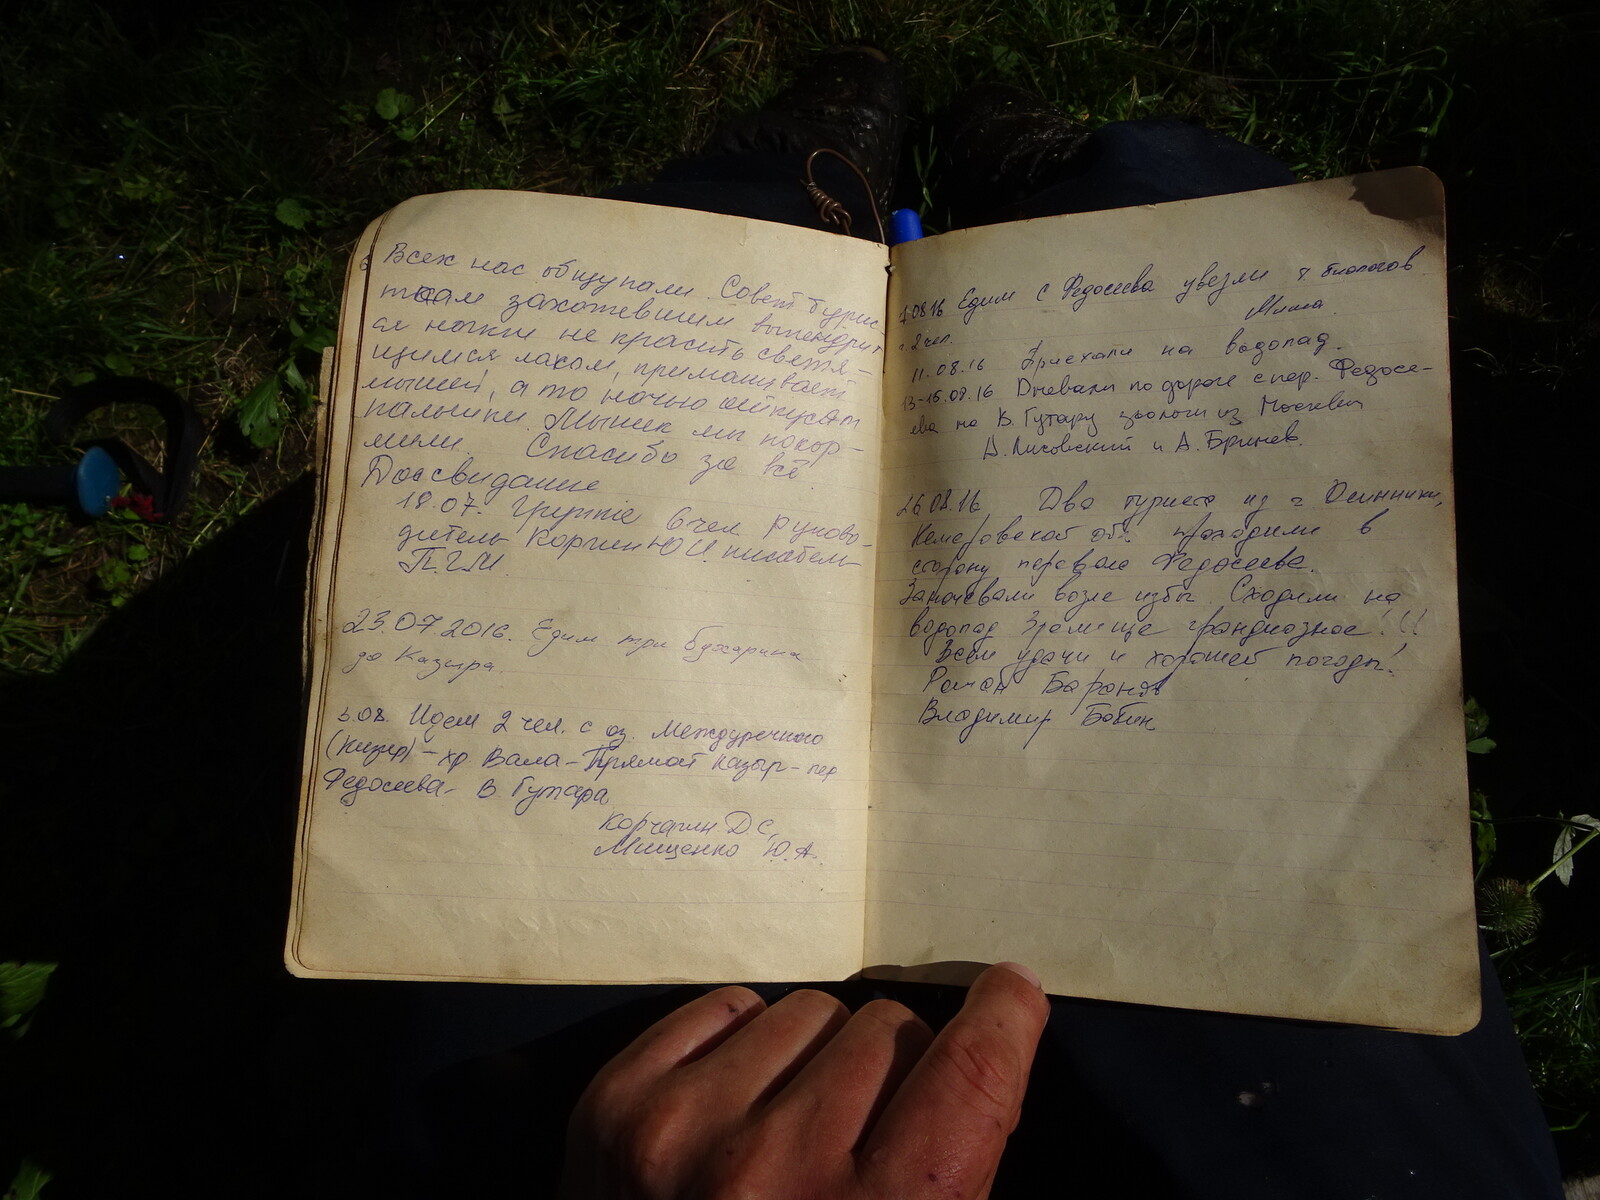 Всех нас общупали. Совет турис-
ткам захотевшим выпендрит
ся ногти не красить светя-
щимся лаком, приманивает
мышей, а то ночью откусят
пальчики. Мышек мы покор-
мили. Спасибо за всё
Досвидание
18.07. Группа 6 чел руково-
дитель Корчен Ю И. писатель
П.Г.М.
23.07.2016. Едим три бухарика
до Казыра.
5.08. Идем 2 чел. с оз. Междуречного
(Кизир) – хр Вала – Прямой Казыр – пер
Федосеева – В. Гутара
Корчагин Д С,
Мищенко Ю.А.
08 16 Едим с Федосеева увезли 7 биологов
2 чел. Миша.
11.08.16 Приехали на водопад.
13-15.08.16 Дневали по дороге с пер. Федосе-
ева на В. Гутару зоологи из Москвы
Лисовский и А. Бринев.
26.08.16 Два туриста из г Осинники,
Кемеровской обл. проходили в
сторону перевала Федосеева.
Заночевали возле избы. Сходили на
водопад Зрелище грандиозное!!!
Всем удачи и хорошей погоды!
Роман Баранов
Владимир Бабин